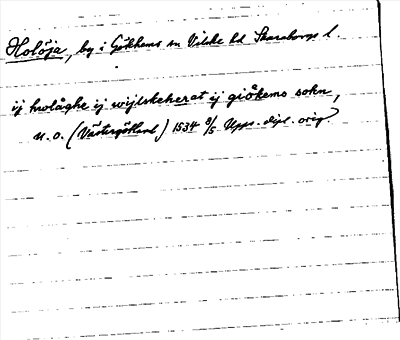 Holöja, by i Gökhems sn Vilske hd Skaraborgs l.
ij holåghe ij wijlskeherat ij giökems sokn,
u. o. (Västergötland) 1534 8/5 Upps. dipl. orig.